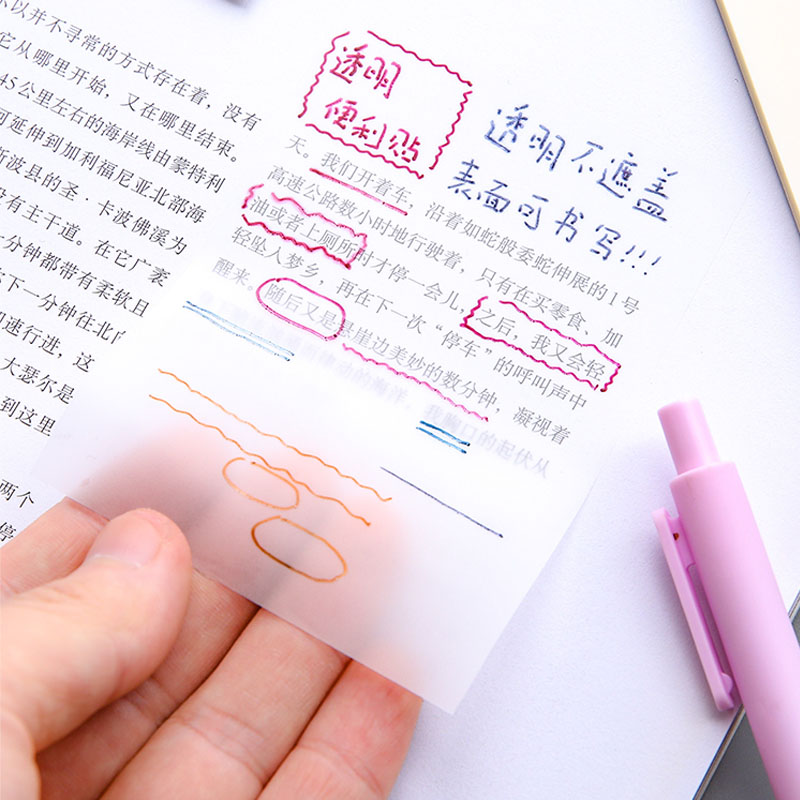 以并不寻常的方式存在着，没有
它从哪里开始，又在哪里结束。
45公里左右的海岸线由蒙特利
可延伸到加利福尼亚北部海
斯波县的圣·卡波佛溪为
没有主干道。在它广袤
分钟都带有柔软且
下一分钟往北
速行进，这
大瑟尔是
到这里
两个
停
透明
便利贴
透明不遮盖
表面可书写!!!
天。我们开着车，沿着如蛇般委蛇伸展的1号
高速公路数小时地行驶着，只有在买零食、加
油或者上厕所时才停一会儿，之后，我又会轻
轻坠入梦乡，再在下一次“停车”的呼叫声中
醒来。随后又是悬崖边美妙的数分钟，凝视着
动的海洋，我胸口的起伏从